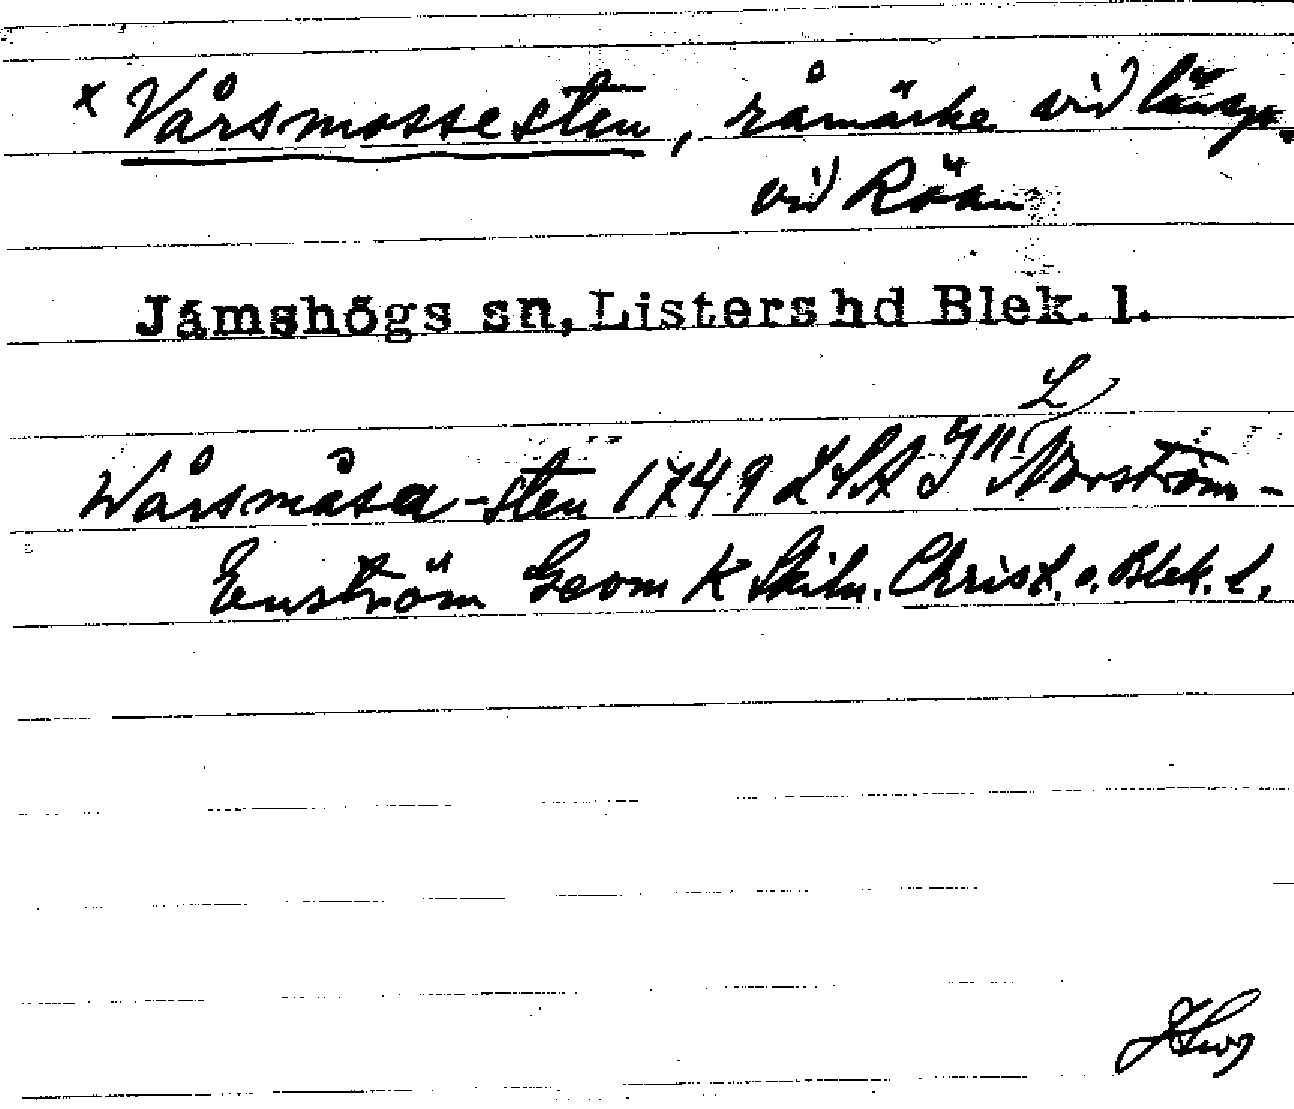 x Vårsmossesten, råmärke vid länsgr.
vid Röan
Jämshögs sn, Listers hd Blek. l.
L
Wårsmåsa-sten 1749 LSA J Norström-
Enström Geom K Skiln. Christ. o. Blek. l.